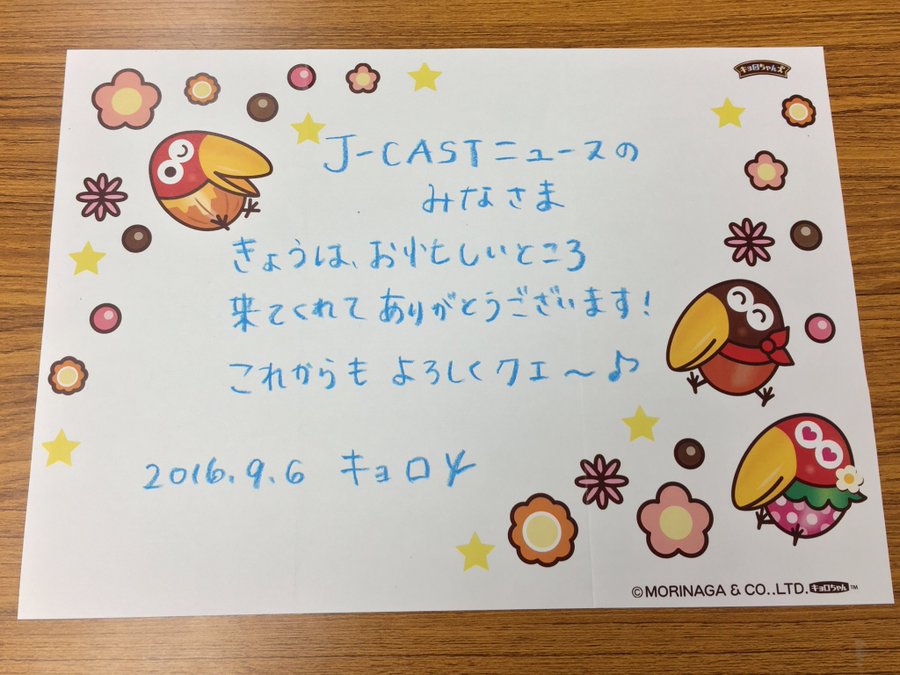 キョロちゃんズ
J-CASTニュースの
みなさま
きょうは、お忙しいところ
来てくれて ありがとうございます!
これからも よろしくクエ〜♪
2016.9.6 キョロ
©MORINAGA & CO.,LTD. キョロちゃん™